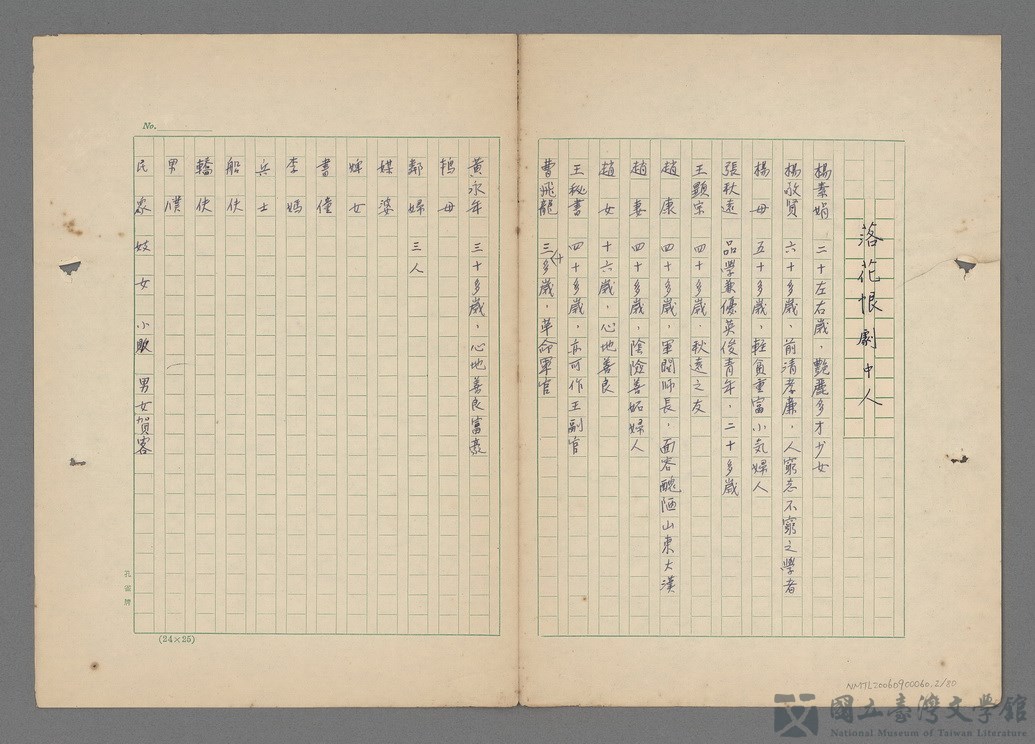 落花恨劇中人
楊素娟 二十左右歲,艷麗多才少女
楊敬賢 六十多歲,前清孝廉,人窮志不窮之學者
楊母 五十多歲,輕貧重富小気婦人
張秋遠 品學兼優英俊青年,二十多歲
王顯宗 四十多歲,秋遠之友
趙康 四十多歲,軍閥師長,面容醜陋山東大漢
趙妻 四十多歲,陰險善妬婦人
趙女 十六歲,心地善良
王秘書 四十多歲,亦可作王副官
曹飛龍 三十多歲,革命軍官
黃永年 三十多歲,心地善良富翁
鴇母
鄰婦 三人
媒婆
婢女
書僮
李媽
兵士
船伕
轎伕
男僕
民眾 妓女 小販 男女賀客
No.
孔雀牌
(24×25)
NMTL20060900060.2/80
國立臺灣文學館
National Museum of Taiwan Literature